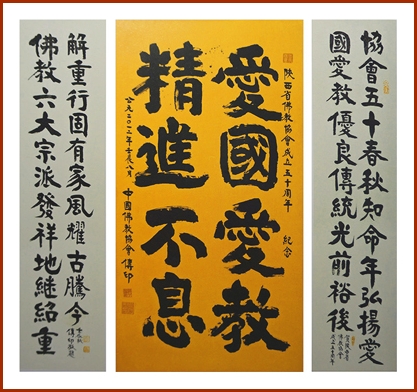 協會五十春秋知命年弘揚愛
國愛教優良傳統光前裕後
陝西省佛教協會成立五十周年 紀念
愛國愛教
精進不息
公元二〇一二年壬辰八月 中國佛教協會傳印
佛教六大宗派發祥地継紹重
解重行固有家風耀古騰今
壬辰秋
傳印敬題